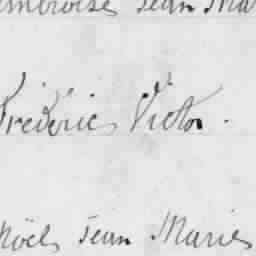 Ambroise Jean Ma
Frédéric Victor.
Noël Jean Marie